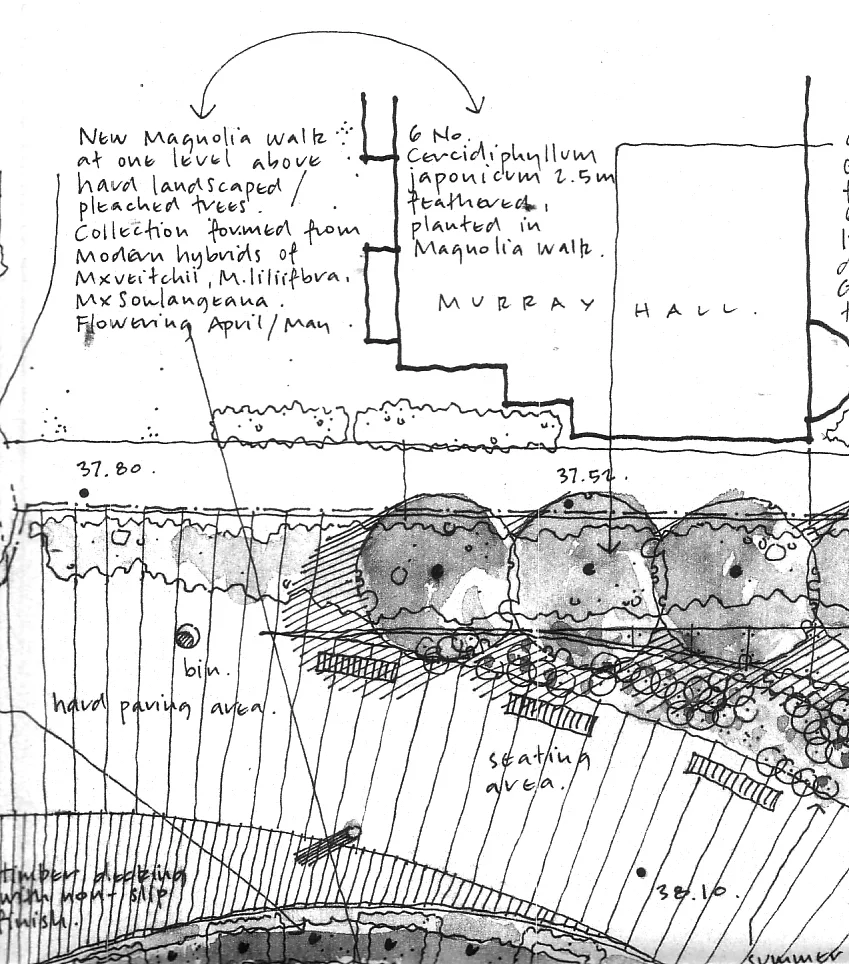 New Magnolia walk
at one level above
hard landscaped
pleached trees.
Collection formed from
Modern hybrids of
Mxveitchii, M.liliiflora,
MxSoulangeana.
Flowering April/May.
6 No.
Cercidiphyllum
japonicum 2.5m
feathered,
planted in
Magnolia walk.
MURRAY HALL.
37.80.
37.52.
bin.
hard paving area.
seating
area.
timber decking
with non-slip
finish.
38.10.
summer